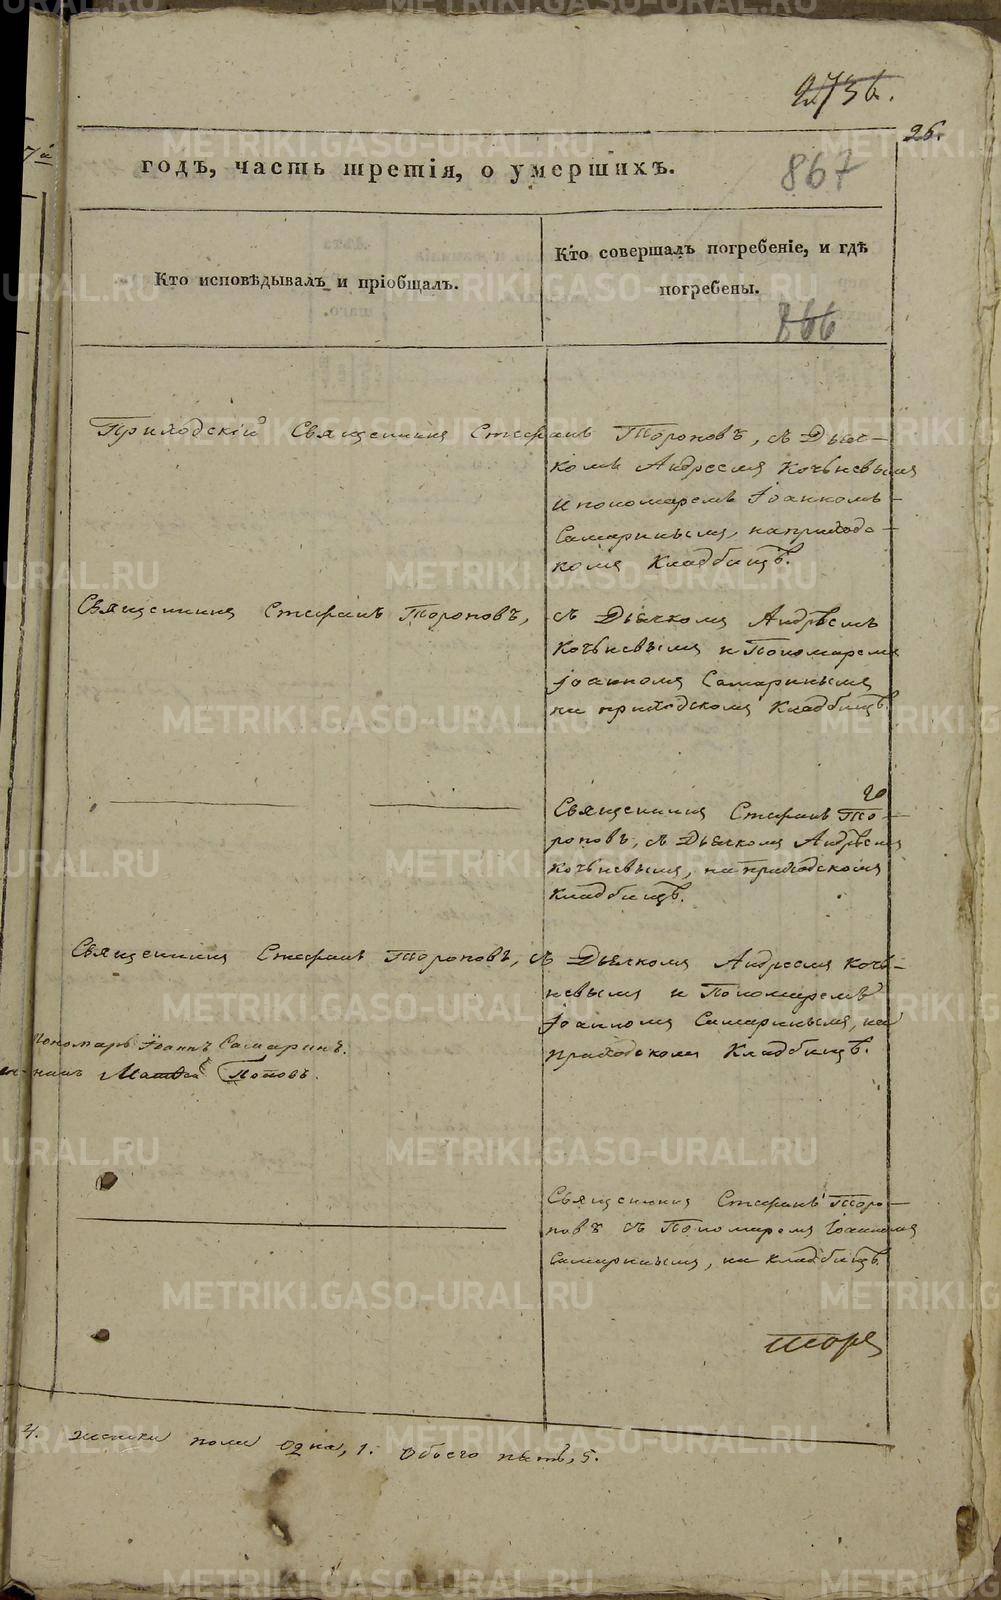 2736.
26.
годъ, часть третія, о умершихъ.
867
Кто исповѣдывалъ и пріобщалъ.
Кто совершалъ погребеніе, и гдѣ
погребены.
866
Приходскій Священникъ Стефанъ Тороповъ, съ Дьяч-
комъ Андреемъ Кочневымъ
и пономаремъ Іоанномъ
Самаринымъ, на приходс-
комъ Кладбищѣ.
Священникъ Стефанъ Тороповъ, съ Дьячкомъ Андрѣемъ
Кочневымъ и Пономаремъ
Іоанномъ Самаринымъ
на приходскомъ Кладбищѣ.
Священникъ Стефанъ То-
роповъ, съ Дьячкомъ Андрѣемъ
Кочневымъ, на приходскомъ
Кладбищѣ.
Священникъ Стефанъ Тороповъ, съ Дьячкомъ Андреемъ Коч-
невымъ и Пономаремъ
Іоанномъ Самаринымъ, на
приходскомъ Кладбищѣ.
Пономарь Іоаннъ Самаринъ.
Поповъ.
Священникъ Стефанъ Торо-
повъ съ Пономаремъ Іоанномъ
Самаринымъ, на кладбищѣ.
4. женска пола одна, 1. Обоего пять, 5.
METRIKI.GASO-URAL.RU